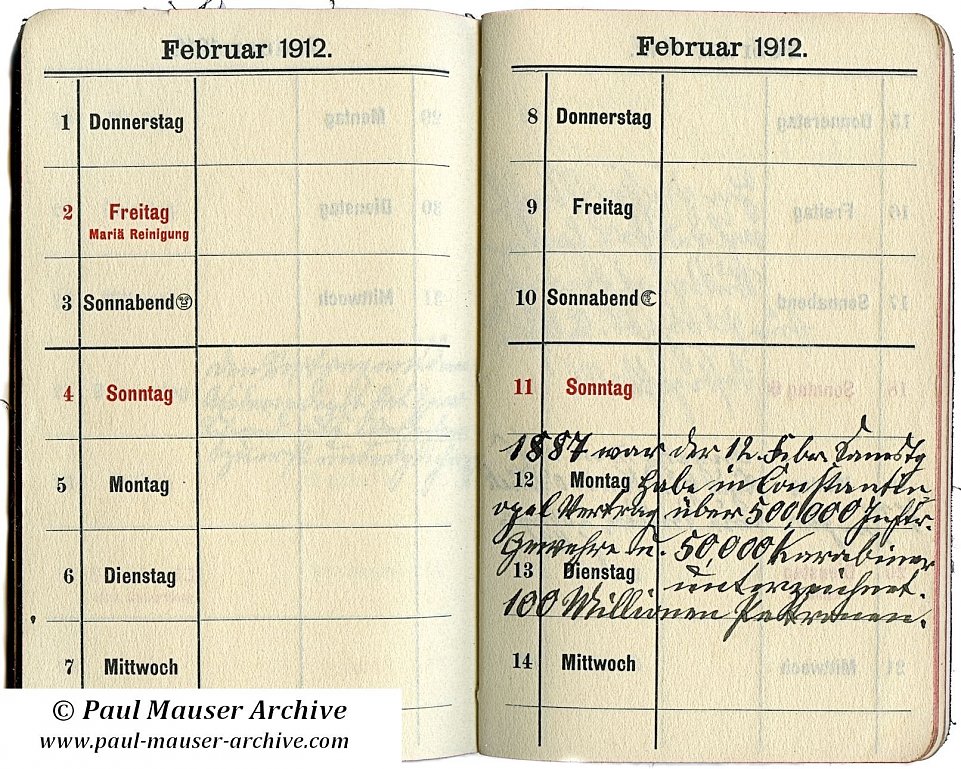 Februar 1912.
1 Donnerstag
2 Freitag
Mariä Reinigung
3 Sonnabend
4 Sonntag
5 Montag
6 Dienstag
7 Mittwoch
© Paul Mauser Archive
www.paul-mauser-archive.com
Februar 1912.
8 Donnerstag
9 Freitag
10 Sonnabend
11 Sonntag
1887 war der 12. Febr. Samstg
12 Montag habe in Constantin
opel Vertrag über 500,000 Inftr.
Gewehre u. 50,000 Karabiner
13 Dienstag unterzeichnet.
100 Millionen Patronen.
14 Mittwoch